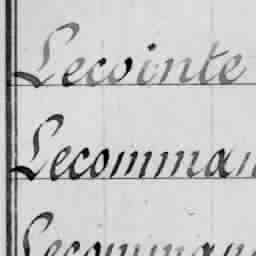 Lecointe
Lecomman
Lecomman